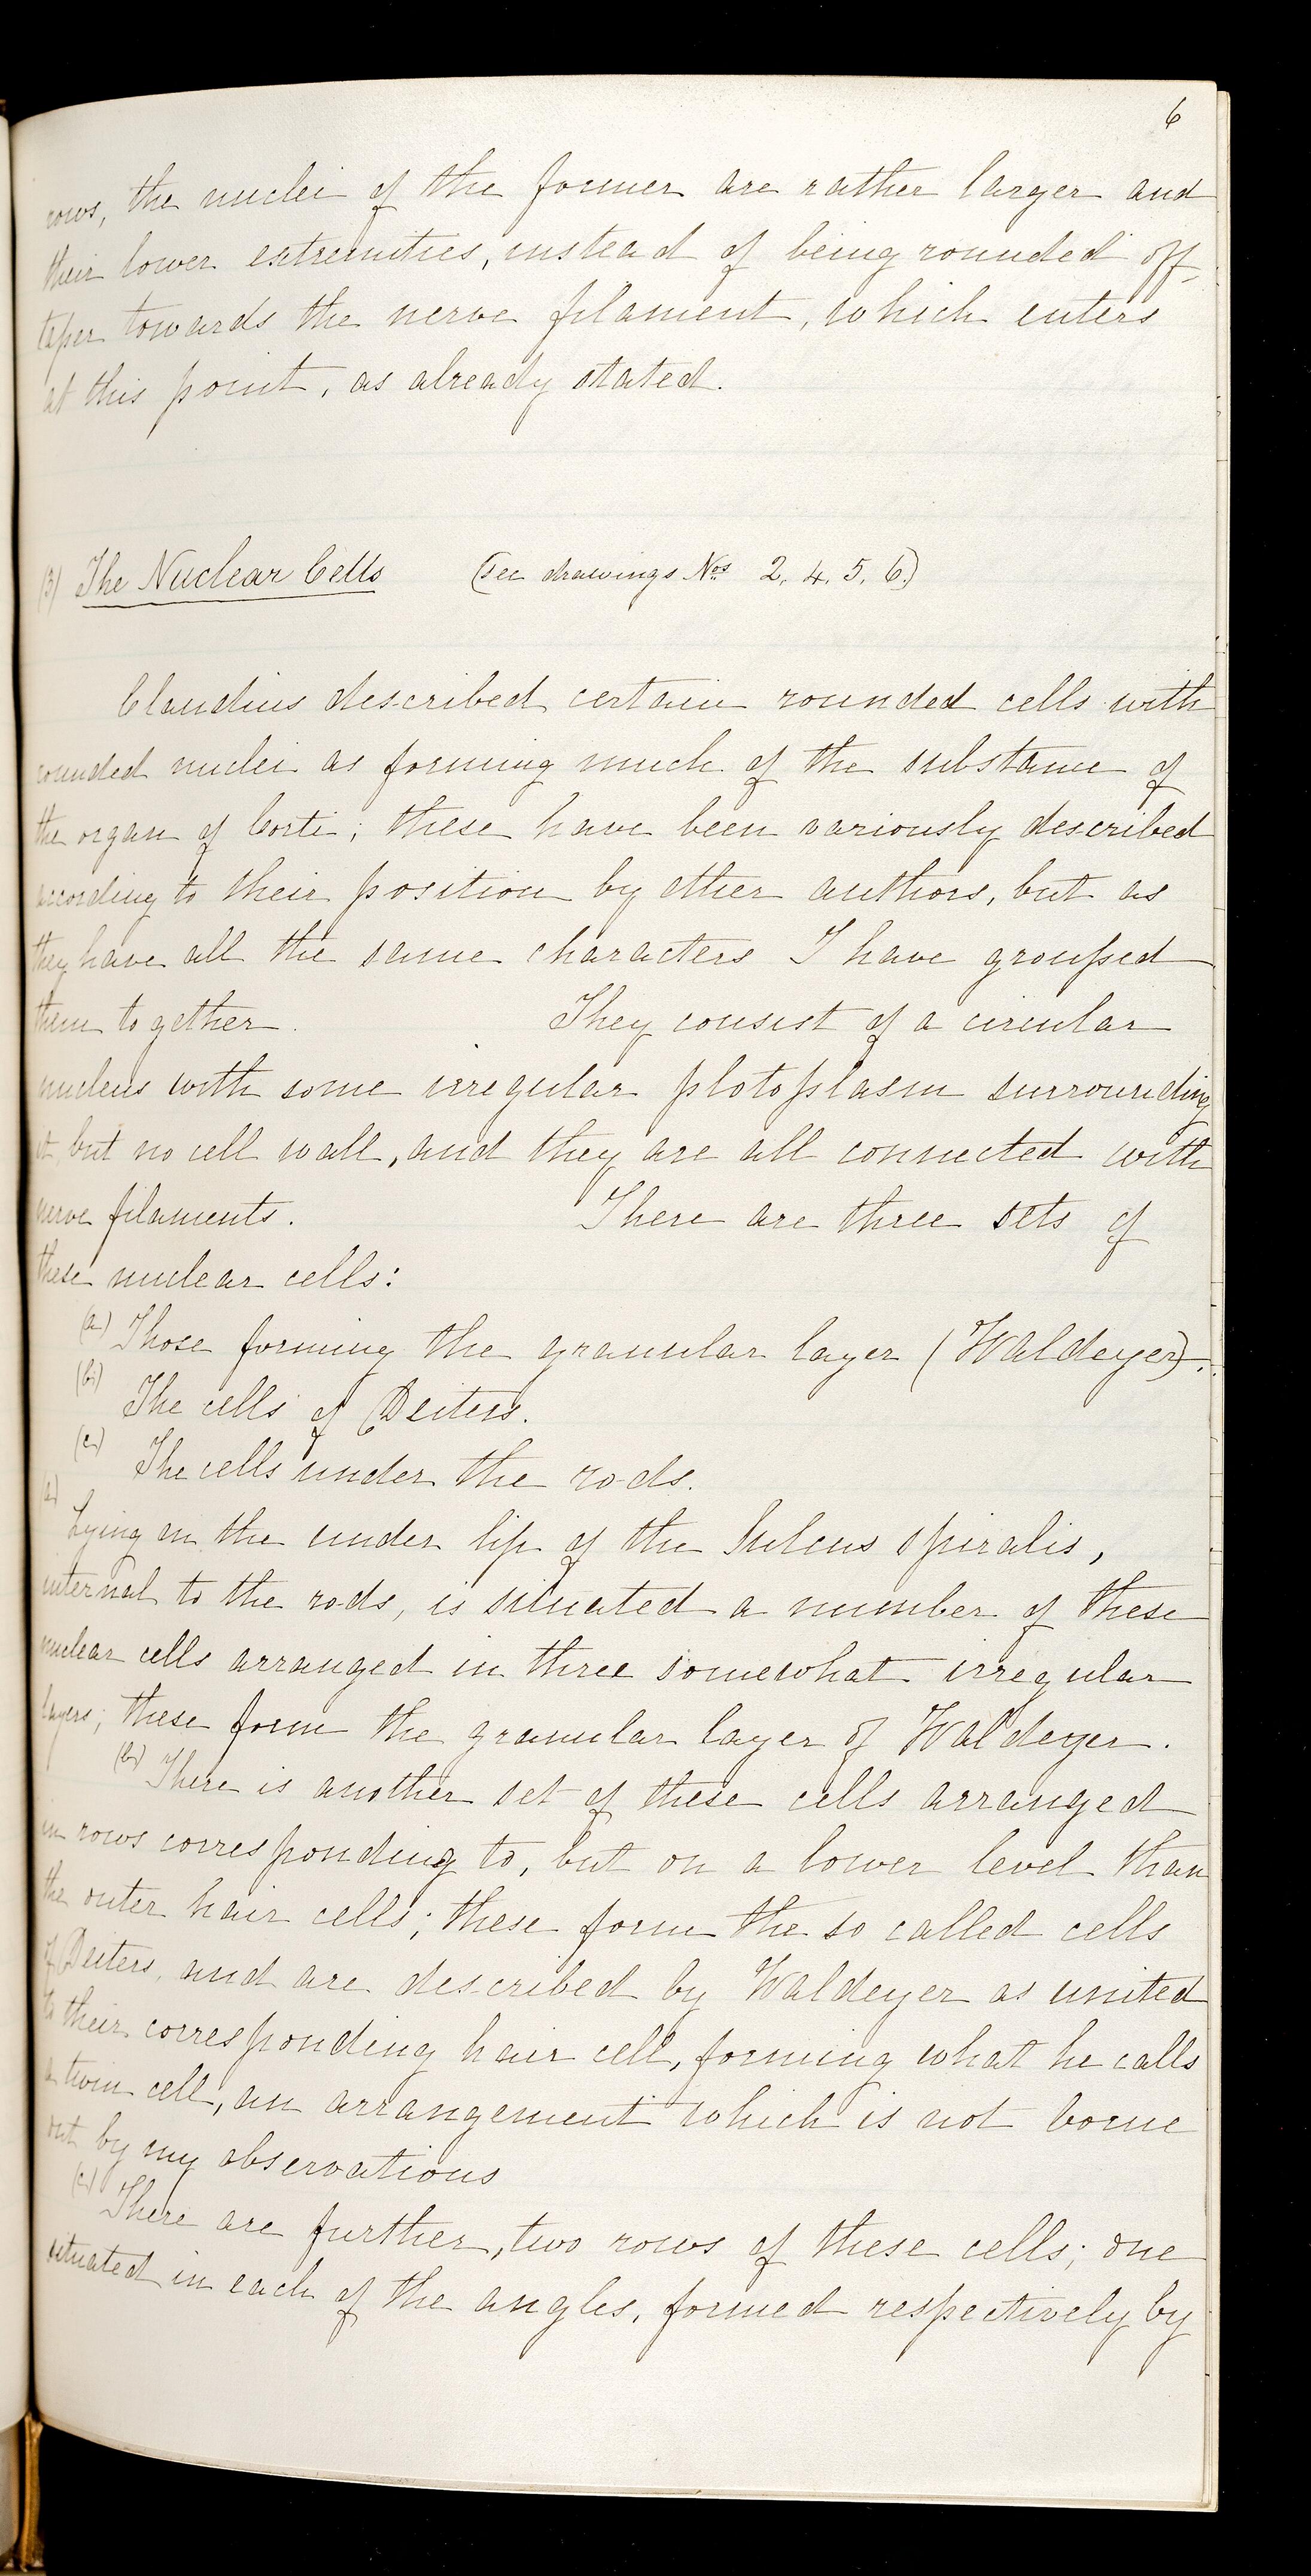 6
rows, the nuclei of the former are rather larger and
their lower extremities, instead of being rounded off,
taper towards the nerve filament, which enters
at this point, as already stated.
(3) The Nuclear Cells (see drawings Nos 2. 4. 5. 6.)
Claudius described certain rounded cells with
rounded nuclei as forming much of the substance of
the organ of Corti; these have been variously described
according to their position by other authors, but as
they have all the same characters I have groupsed
them together. They consist of a circular
nucleus with some irregular plotoplasm surrounding
it but no cell wall, and they are all connected with
nerve filaments. There are three sets of
these nuclear cells:
(a) Those forming the granular layer (Waldeyer).
(b) The cells of Deiters.
(c) The cells under the rods.
(a) Lying on the under lip of the Sulcus spiralis,
internal to the rods, is situated a number of these
nuclear cells arranged in three somewhat irregular
layers; these form the granular layer of Waldeyer.
(b) There is another set of these cells arranged
in rows corresponding to, but on a lower level than
the outer hair cells; these form the so called cells
of Deiters, and are described by Waldeyer as united
to their corresponding hair cell, forming what he calls
a twin cell, an arrangement which is not borne
out by my observations
(c) There are further, two rows of these cells; one
situated in each of the angles, formed respectively by